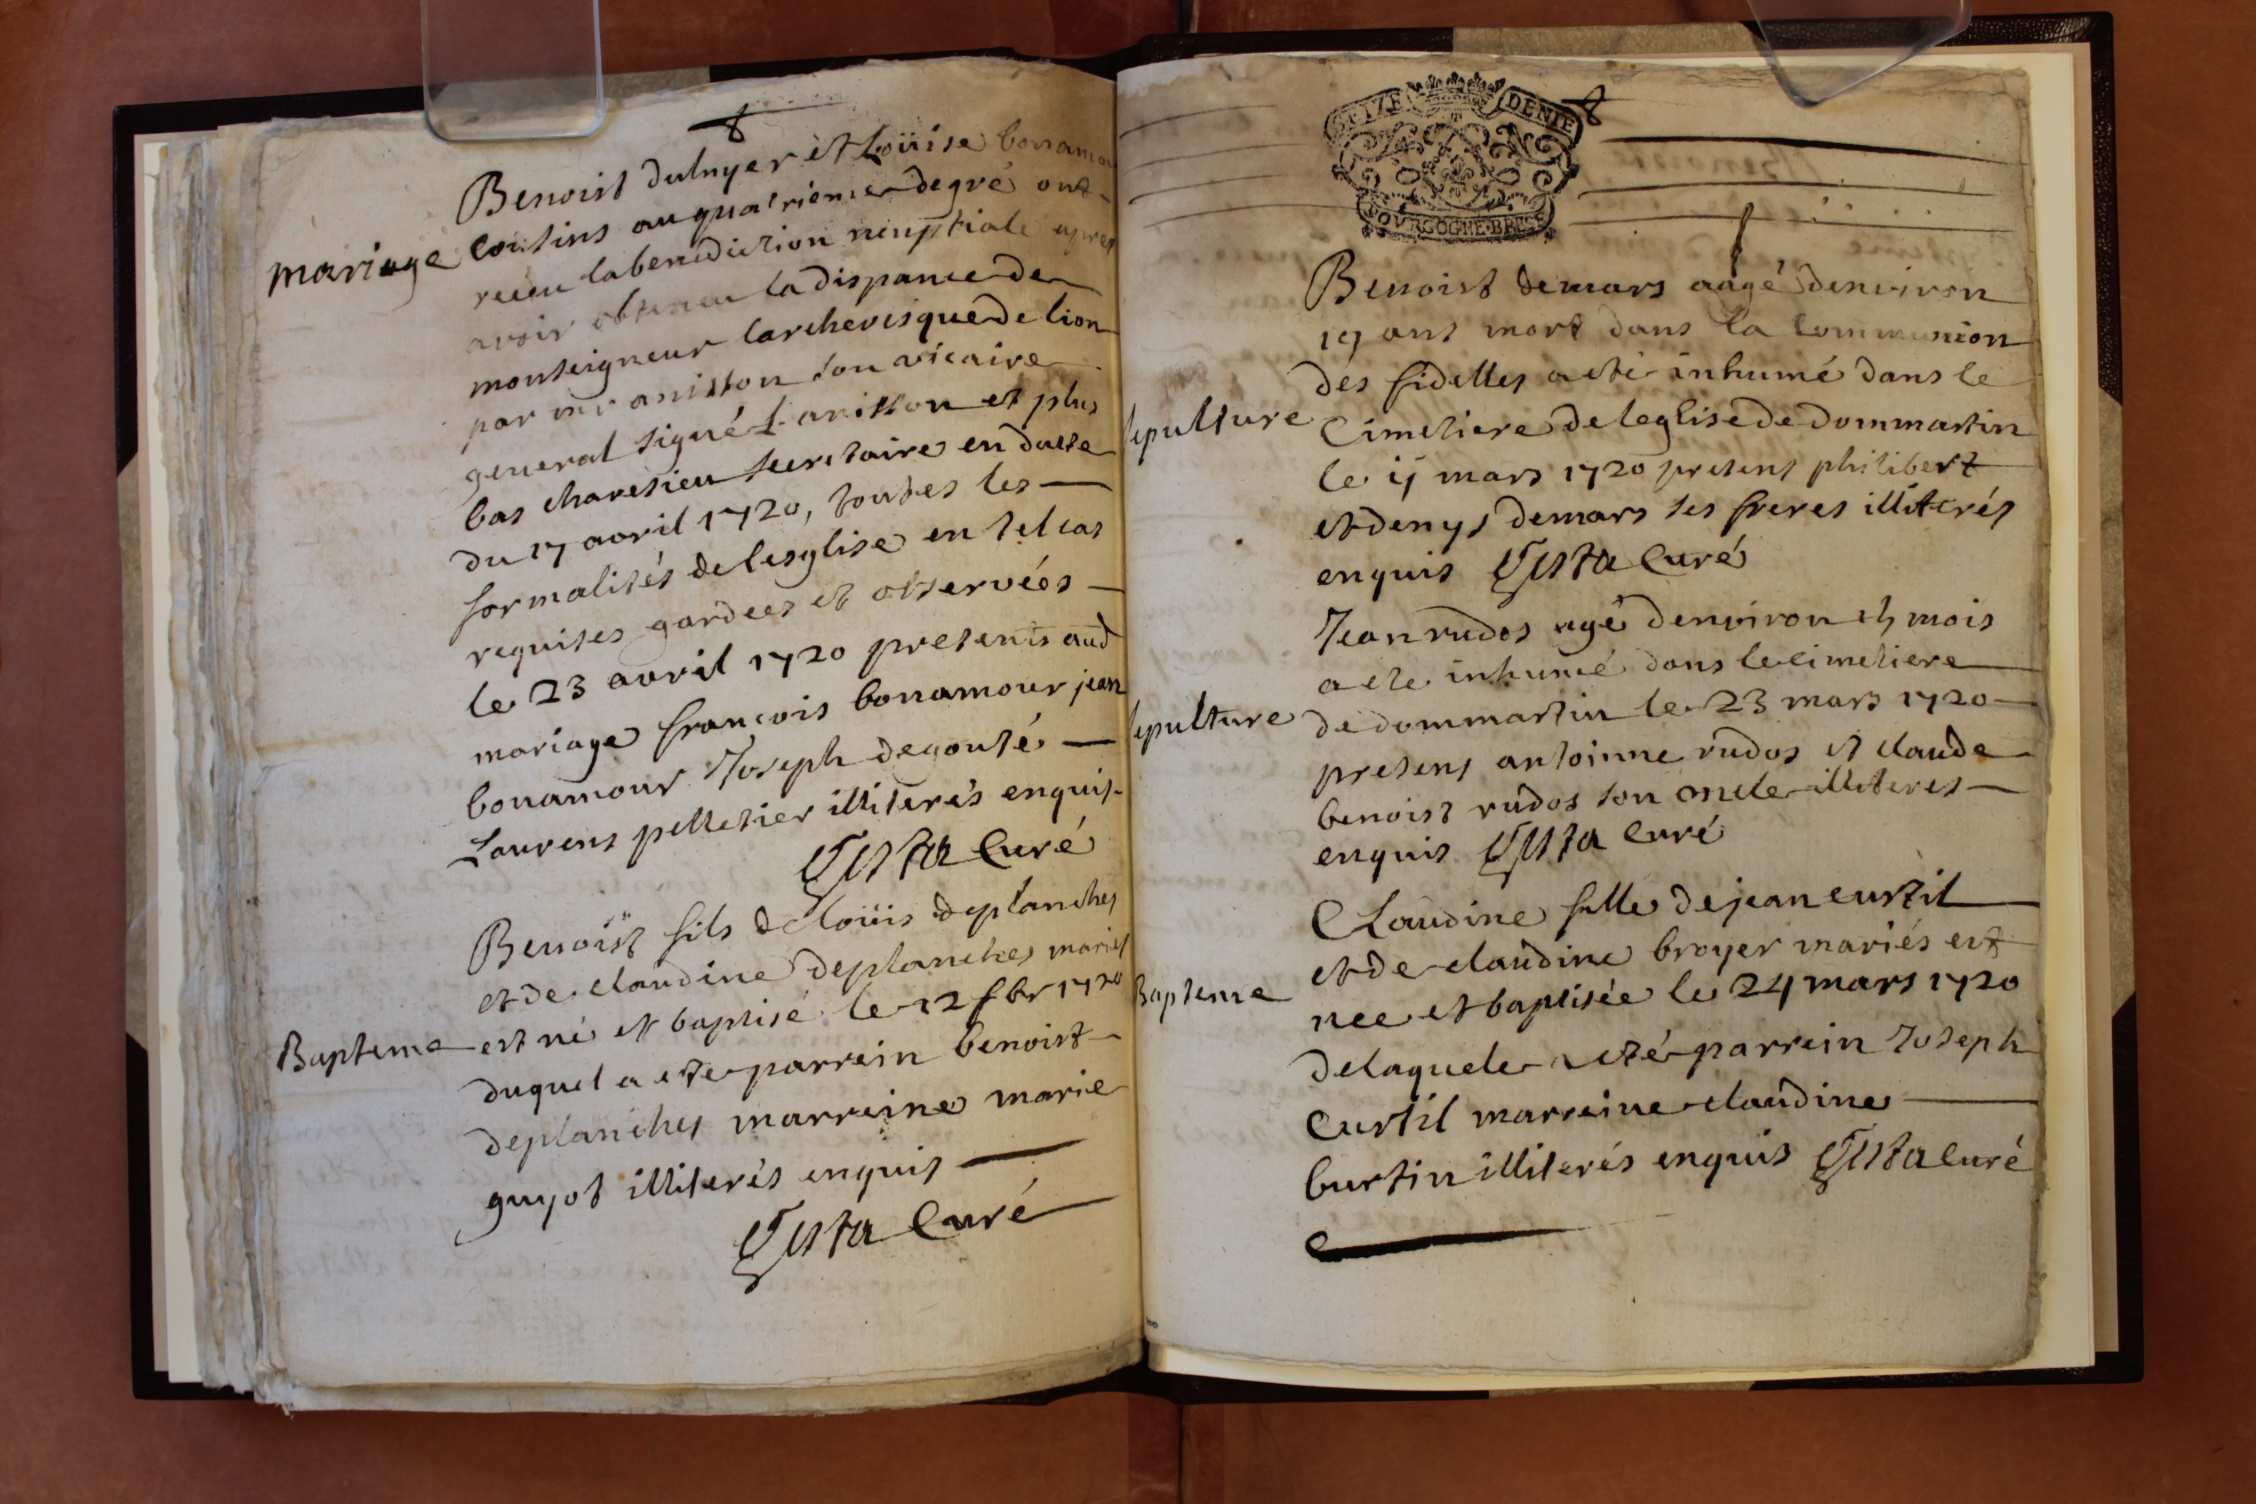 Benoist dulnyer et Loüise bonamo
mariage
cousins au quatrieme degré ont
receu la benediction nuptiale apres
avoir obteneu la dispance de
monseigneur larchevisque de lion
par mr anisson son vicaire
general signé L. anisson et plus
bas charesieu secretaire en datte
du 17 avril 1720, toutes les
formalités de lesglise en tel cas
requises gardees et observées
le 23 avril 1720 presents aud
mariage françois bonamour jean
bonamour Joseph degouté
Laurens pelletier illiterés enquis
Testa Curé
Benoist fils de loüis deplanches
et de claudine deplanches mariés
Bapteme
est né et baptisé le 12 fbr 1720
duquel a ete parrein benoist
deplanches marreine marie
guyot illiterés enquis
Testa Curé
SEIZE DENIE
BOURGOGNE BRESSE
Benoist demars aagé denviron
19 ans mort dans la communion
des fidelles a eté inhumé dans le
sepulture
Cimetiere de leglise de dommartin
le 11 mars 1720 presens philibert
et denys demars ses freres illiterés
enquis Testa Curé
Jean rudos agé denviron mois
a ete inhumé dans le cimetiere
sepulture
de dommartin le 23 mars 1720
presens antoinne rudos et claude
benoist rudos son oncle illiteres
enquis Testa Curé
Claudine fille de jean curtil
et de claudine broyer mariés est
Bapteme
nee et baptisée le 24 mars 1720
de laquele a eté parrein Joseph
Curtil marreine claudine
burtin illiterés enquis Testa Curé